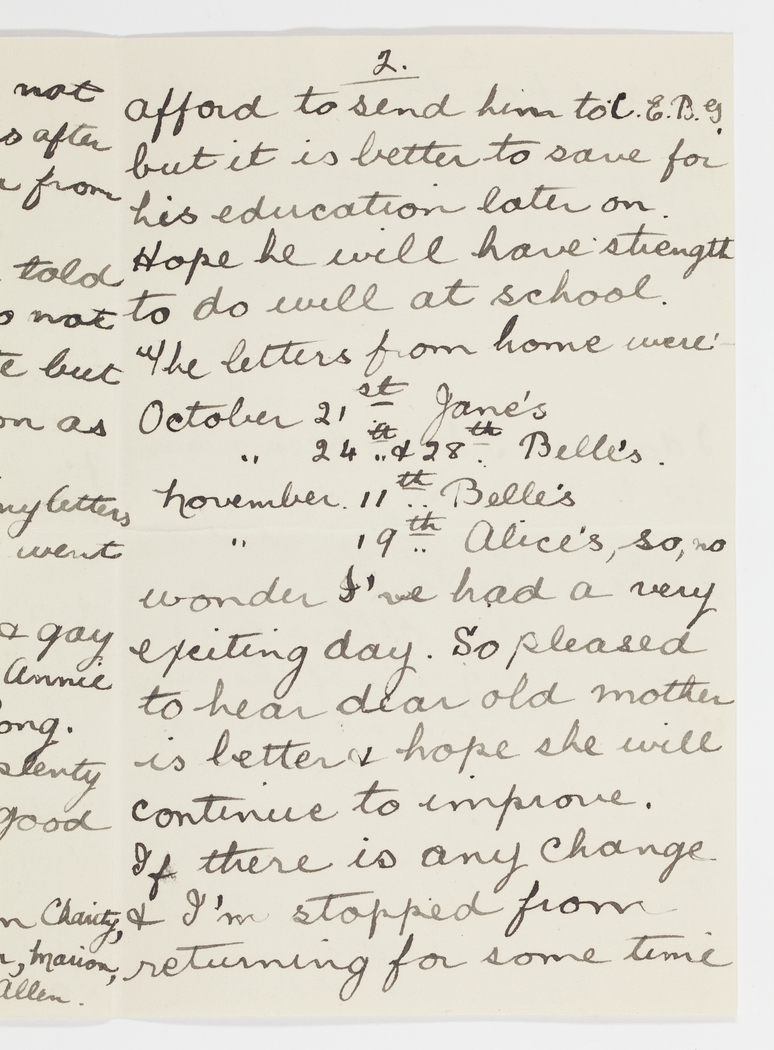 not
s after
from
told
not
but
on as
my letters
went
& gay
Annie
ong.
plenty
good
n Charity,
, Marion,
Allen.
2.
afford to send him to C.E.B.GS.
but it is better to save for
his education later on.
Hope he will have strength
to do well at school.
The letters from home were:-
October 21st Jane's
" 24th & 28th Belle's.
November. 11th Belle's
" 19th Alice's, so, no
wonder I've had a very
exciting day. So pleased
to hear dear old mother
is better & hope she will
continue to improve.
If there is any change
& I'm stopped from
returning for some time